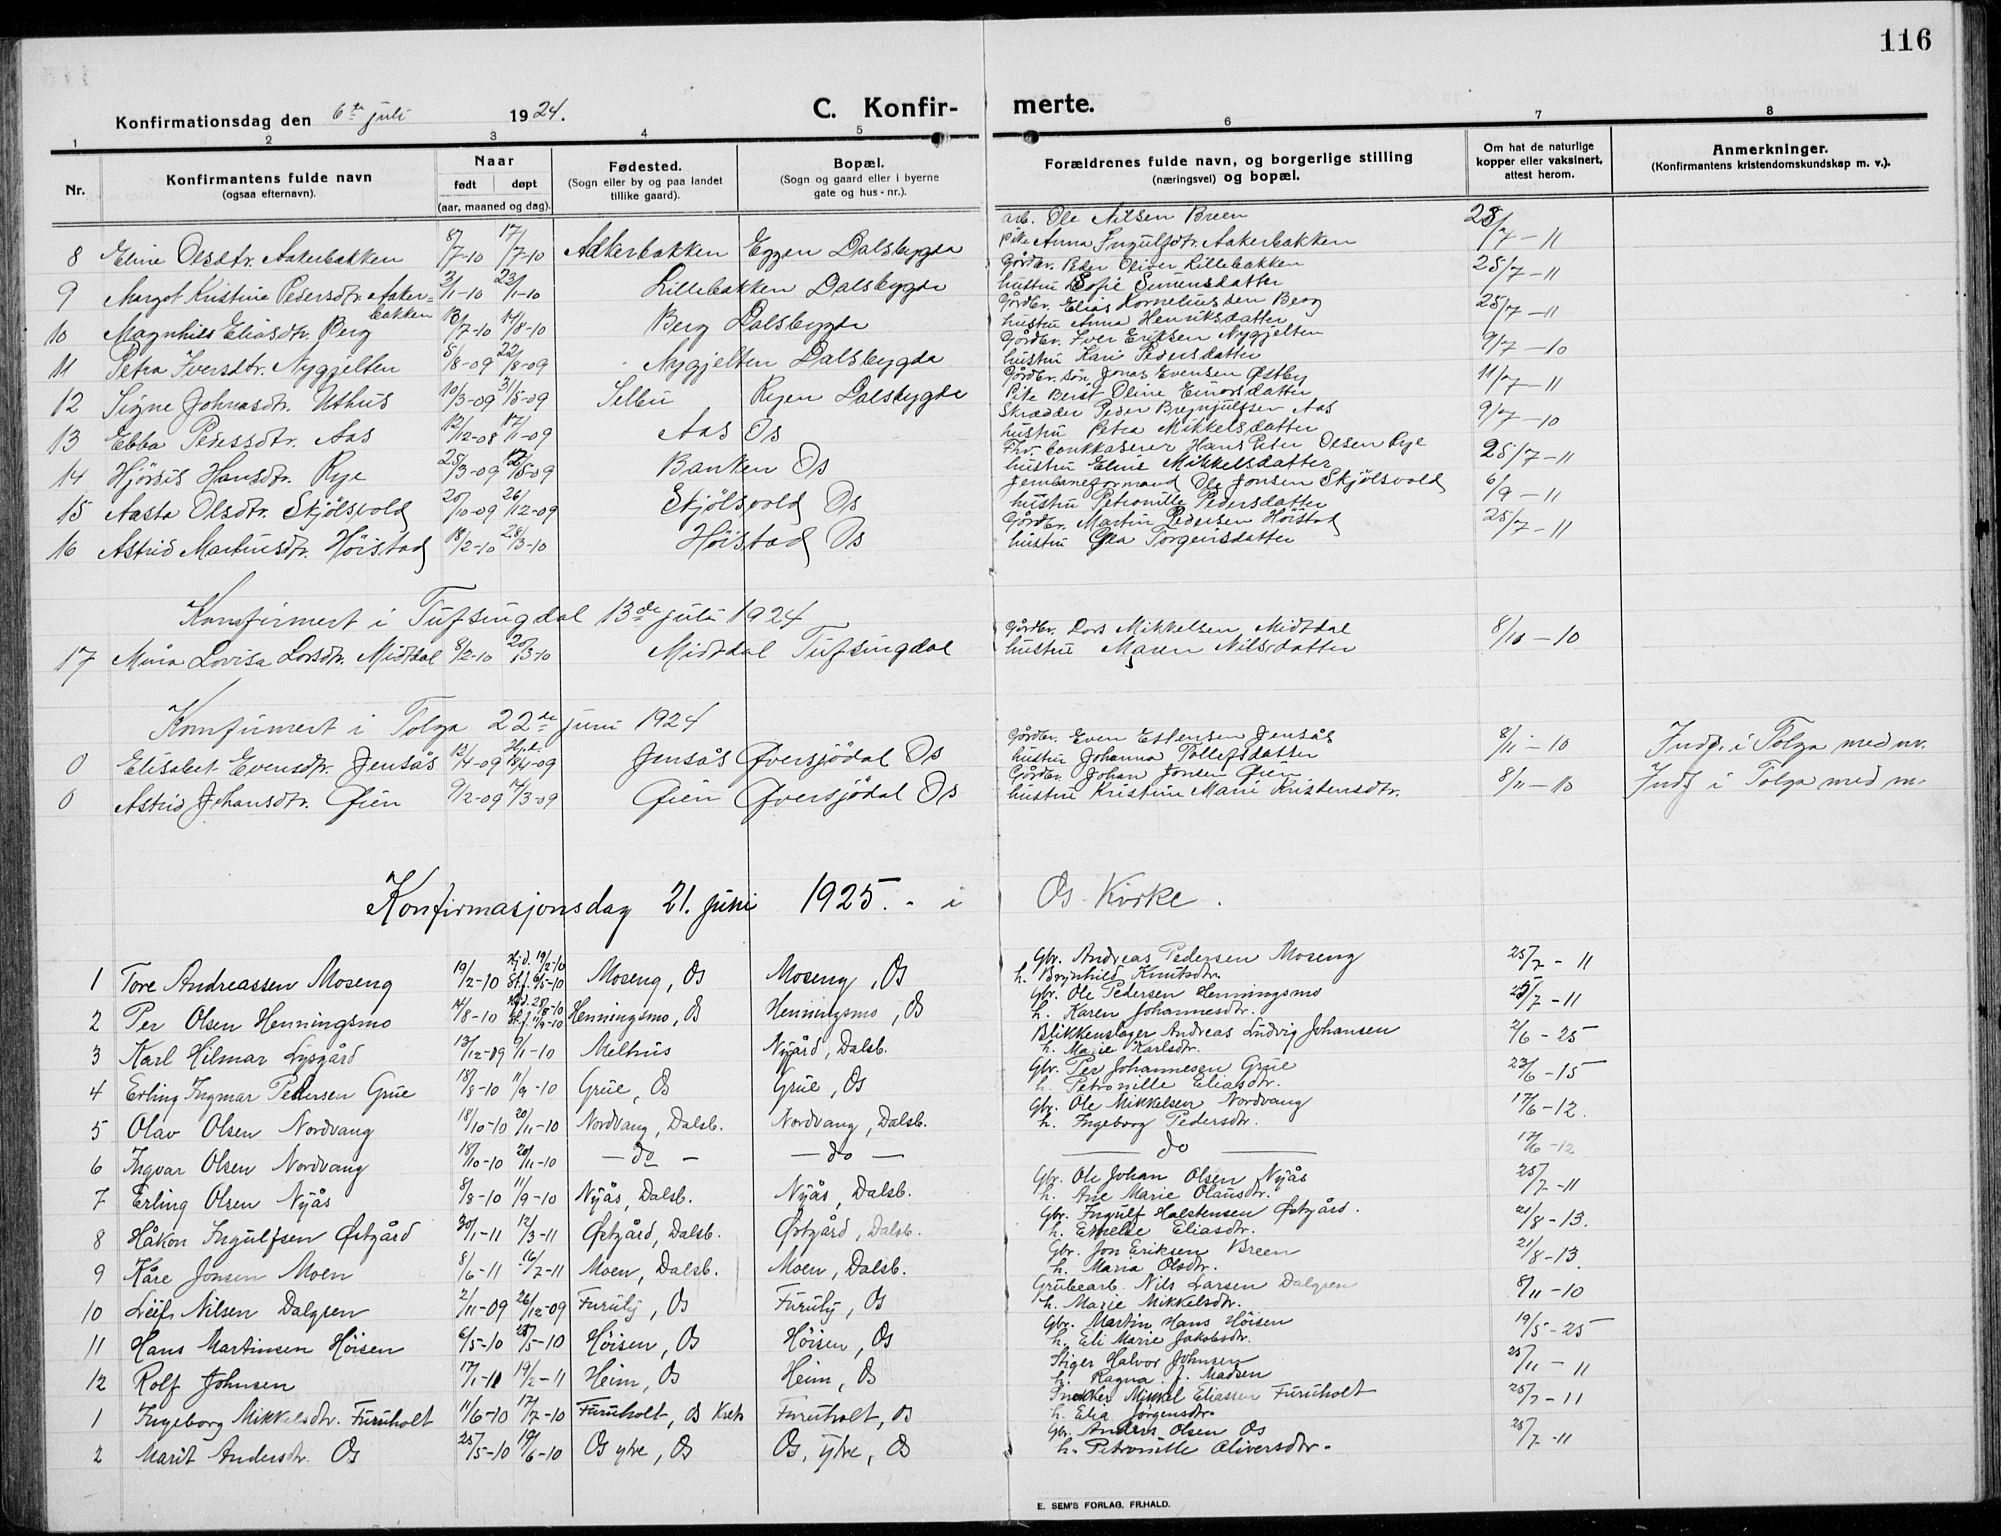 116
Konfirmationsdag den 6te juli 1924. C. Konfir- merte.
1 2 3 4 5 6 7 8
Nr. Konfirmantens fulde navn (ogsaa efternavn). Naar født døpt (aar, maaned og dag). Fødested. (Sogn eller by og paa landet tillike gaard). Bopæl. (Sogn og gaard eller i byerne gate og hus-nr.). Forældrenes fulde navn, og borgerlige stilling (næringsvei) og bopæl. Om hat de naturlige kopper eller vaksinert, attest herom. Anmerkninger. (Konfirmantens kristendomskundskap m. v.).
arb. Ole Nilsen Breen
8 Eline Olsdtr. Aakerbakken 8/7-10 17/7-10 Aakerbakken Eggen Dalsbygda pike Anna Ingulfsdtr. Aakerbakken 25/7-11
Gårdbr. Peder Oliver Lillebakken
9 Margot Kristine Pedersdtr. Aakerbakken 2/1-10 23/1-10 Lillebakken Dalsbygda hustru Sofie Simensdatter 25/7-11
Gårdbr. Elias Korneliussen Berg
10 Magnhild Eliasdtr. Berg 13/7-10 14/8-10 Berg Dalsbygda hustru Anna Henriksdatter 25/7-11
Gårdbr. Iver Eriksen Nygjelten
11 Petra Iversdtr. Nygjelten 8/8-09 22/8-09 Nygjelten Dalsbygda hustru Kari Pedersdatter 9/7-10
Gårdbr. søn Jonas Evensen Østby
12 Signe Johnasdtr. Uthus 10/3-09 31/5-09 Selbu Ryen Dalsbygda Pike Berit Oline Einarsdatter 11/7-11
Skrædder Peder Brynjulfsen Aas
13 Ebba Pedersdtr. Aas 12/12-08 17/1-09 Aas Os hustru Petra Mikkelsdatter 9/7-10
Fhv. bankkaserer Hans Peter Olsen Rye
14 Hjørdis Hansdtr. Rye 25/3-09 12/5-09 Banken Os hustru Eline Mikkelsdatter 25/7-11
Jernbaneformand Ole Jonsen Skjølsvold
15 Aasta Olsdtr. Skjølsvold 20/10-09 26/12-09 Skjølsvold Os hustru Petronille Pedersdatter 6/9-11
Gårdbr. Martin Pedersen Høistad
16 Astrid Martinsdtr. Høistad 18/2-10 28/3-10 Høistad Os hustru Gea Torgeirsdatter 25/7-11
Konfirmert i Tufsingdal 13de juli 1924
Gårdbr. Lars Mikkelsen Midtdal
17 Mina Lovisa Larsdtr. Midtdal 8/2-10 20/3-10 Midtdal Tufsingdal hustru Maren Nilsdatter 8/10-10
Konfirmert i Tolga 22de juni 1924
Gårdbr. Even Estensen Jensås
0 Elisabet Evensdtr. Jensås 12/4-09 Hjd. 18/4-09 Jensås Øversjødal Os hustru Johanna Tollefsdatter 8/11-10 Indf. i Tolga med nr.
Gårdbr. Johan Jonsen Øien
0 Astrid Johansdtr. Øien 9/2-09 14/3-09 Øien Øversjødal Os hustru Kristine Marie Kristensdtr. 8/11-10 Indf i Tolga med nr.
Konfirmasjonsdag 21. juni 1925. - i Os Kirke.
Gbr. Andreas Pedersen Moseng
1 Tore Andreassen Moseng 19/2-10 Hj.d. 19/2-10 St.f. 6/5-10 Moseng, Os Moseng, Os h. Brynhild Knutsdtr. 25/7-11
Gbr. Ole Pedersen Henningsmo
2 Per Olsen Henningsmo 14/8-10 Hjd. 28/8-10 St.f. 11/9-10 Henningsmo, Os Henningsmo, Os h. Karen Johannesdtr. 25/7-11
Blikkenslager Andreas Ludvig Johansen
3 Karl Hilmar Lysgård 13/12-09 9/1-10 Melhus Nygård, Dalsb. h. Marie Karlsdtr. 2/6-25
Gbr. Per Johannesen Grue
4 Erling Ingmar Pedersen Grue 18/8-10 11/9-10 Grue, Os Grue, Os h. Petronille Eliasdtr. 23/6-15
Gbr. Ole Mikkelsen Nordvang
5 Olav Olsen Nordvang 18/10-10 20/11-10 Nordvang, Dalsb. Nordvang, Dalsb. h. Ingeborg Pedersdtr. 17/6-12.
6 Ingvar Olsen Nordvang 18/10-10 20/11-10 - do - - do - do 17/6-12
Gbr. Ole Johan Olsen Nyås
7 Erling Olsen Nyås 8/8-10 11/9-10 Nyås, Dalsb. Nyås, Dalsb. h. Ane Marie Olausdtr. 25/7-11
Gbr. Ingulf Halstensen Østgård.
8 Håkon Ingulfsen Østgård 30/1-11 12/3-11 Østgård, Dalsb. Østgård, Dalsb. h. Embelse Eliasdtr. 21/8-13.
Gbr. Jon Eriksen Breen
9 Kåre Jonsen Moen 8/6-11 16/7-11 Moen, Dalsb. Moen, Dalsb. h. Maria Olsdtr. 21/8-13.
Grubearb. Nils Larsen Dalgren
10 Leif Nilsen Dalgren 2/11-09 26/12-09 Furuly, Os Furuly, Os h. Marie Mikkelsdtr. 8/11-10
Gbr. Martin Hans Høisen
11 Hans Martinsen Høisen 6/5-10 28/5-10 Høisen, Os Høisen, Os h. Eli Marie Jakobsdtr. 19/5-25
Stiger Halvor Johnsen
12 Rolf Johnsen 17/1-11 19/2-11 Heim, Os Heim, Os h. Ragna f. Madsen 25/11-11
Snekker Mikkel Eliassen Furuholt
1 Ingeborg Mikkelsdtr. Furuholt 11/6-10 17/7-10 Furuholt, Os Furuholt, Os h. Elia Jørgensdtr. 25/7-11
Gbr. Anders Olsen Os
2 Marit Andersdtr. Os 25/5-10 19/6-10 Os ytre, Os Os, ytre, Os h. Petronille Oliversdtr. 25/7-11
E. SEM'S FORLAG. FR.HALD.